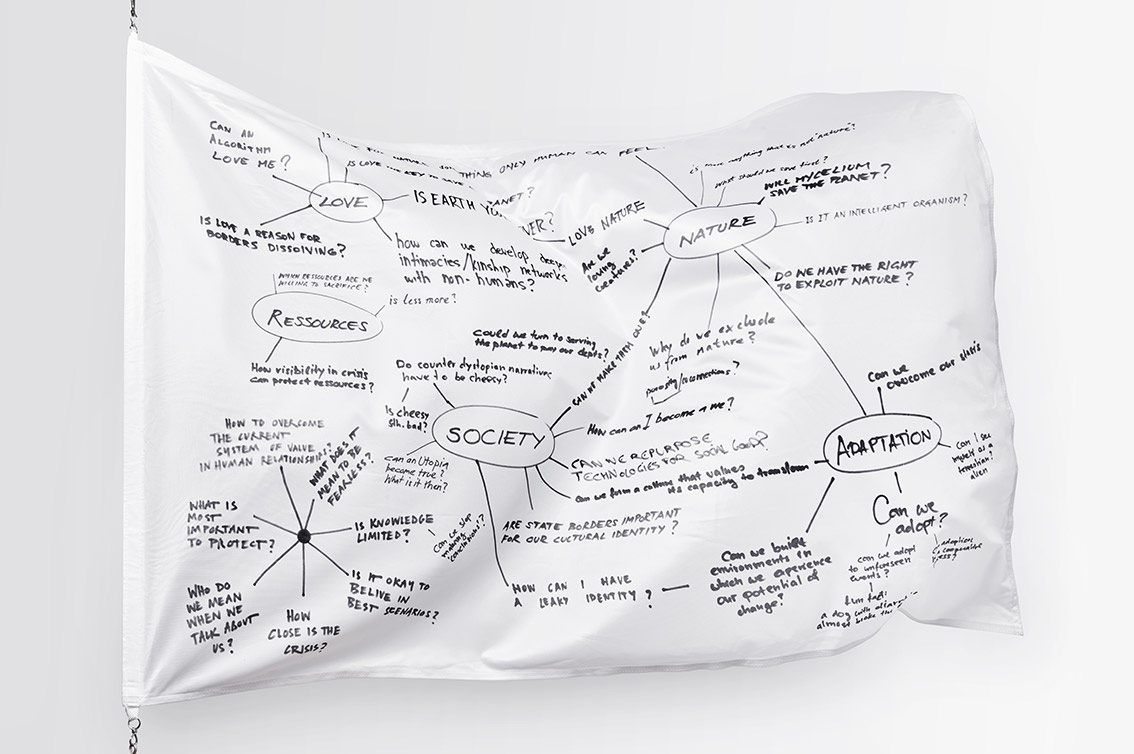 CAN AN
ALGORITHM
LOVE ME?
THING ONLY HUMAN CAN FEEL
IS LOVE
LOVE
IS EARTH
ANET?
VER?
LOVE NATURE
IS LOVE A REASON FOR
BORDERS DISSOLVING?
how can we develop deep
intimacies/kinship networks
with non-humans?
Are we
loving
creatures?
is there anything that is not "nature"?
What should we save first?
WILL MYCELIUM
SAVE THE PLANET?
NATURE
IS IT AN INTELLIGENT ORGANISM?
DO WE HAVE THE RIGHT
TO EXPLOIT NATURE?
Why do we exclude
us from nature?
WHICH RESSOURCES ARE WE
WILLING TO SACRIFICE?
is less more?
RESSOURCES
How visibility in crisis
can protect ressources?
Could we turn to serving
the planet to pay our depts?
CAN WE MAKE THEM ONE?
Do counter dystopian narratives
have to be cheesy?
Is cheesy
bad?
SOCIETY
can an Utopia
become true?
What is it then?
How can an I become a we?
CAN WE REPURPOSE
TECHNOLOGIES FOR SOCIAL GOOD?
Can we form a culture that values
its capacity to transform
ARE STATE BORDERS IMPORTANT
FOR OUR CULTURAL IDENTITY?
HOW CAN I HAVE
A LEAKY IDENTITY?
Can we
overcome our
ADAPTATION
can I see
myself as a
alien
Can we built
environments in
which we experience
our potential of
change?
Can we
adopt?
can we adapt
to unforeseen
events?
fun fact:
a dog with
almost
HOW TO OVERCOME
THE CURRENT
SYSTEM OF VALUE
IN HUMAN RELATIONSHIPS?
WHAT DOES IT
MEAN TO BE
FEARLESS?
WHAT IS
MOST
IMPORTANT
TO PROTECT?
IS KNOWLEDGE
LIMITED?
Can we stop
making
conclusions?
WHO DO
WE MEAN
WHEN WE
TALK ABOUT
US?
HOW
CLOSE IS THE
CRISIS?
IS IT OKAY TO
BELIVE IN
BEST SCENARIOS?